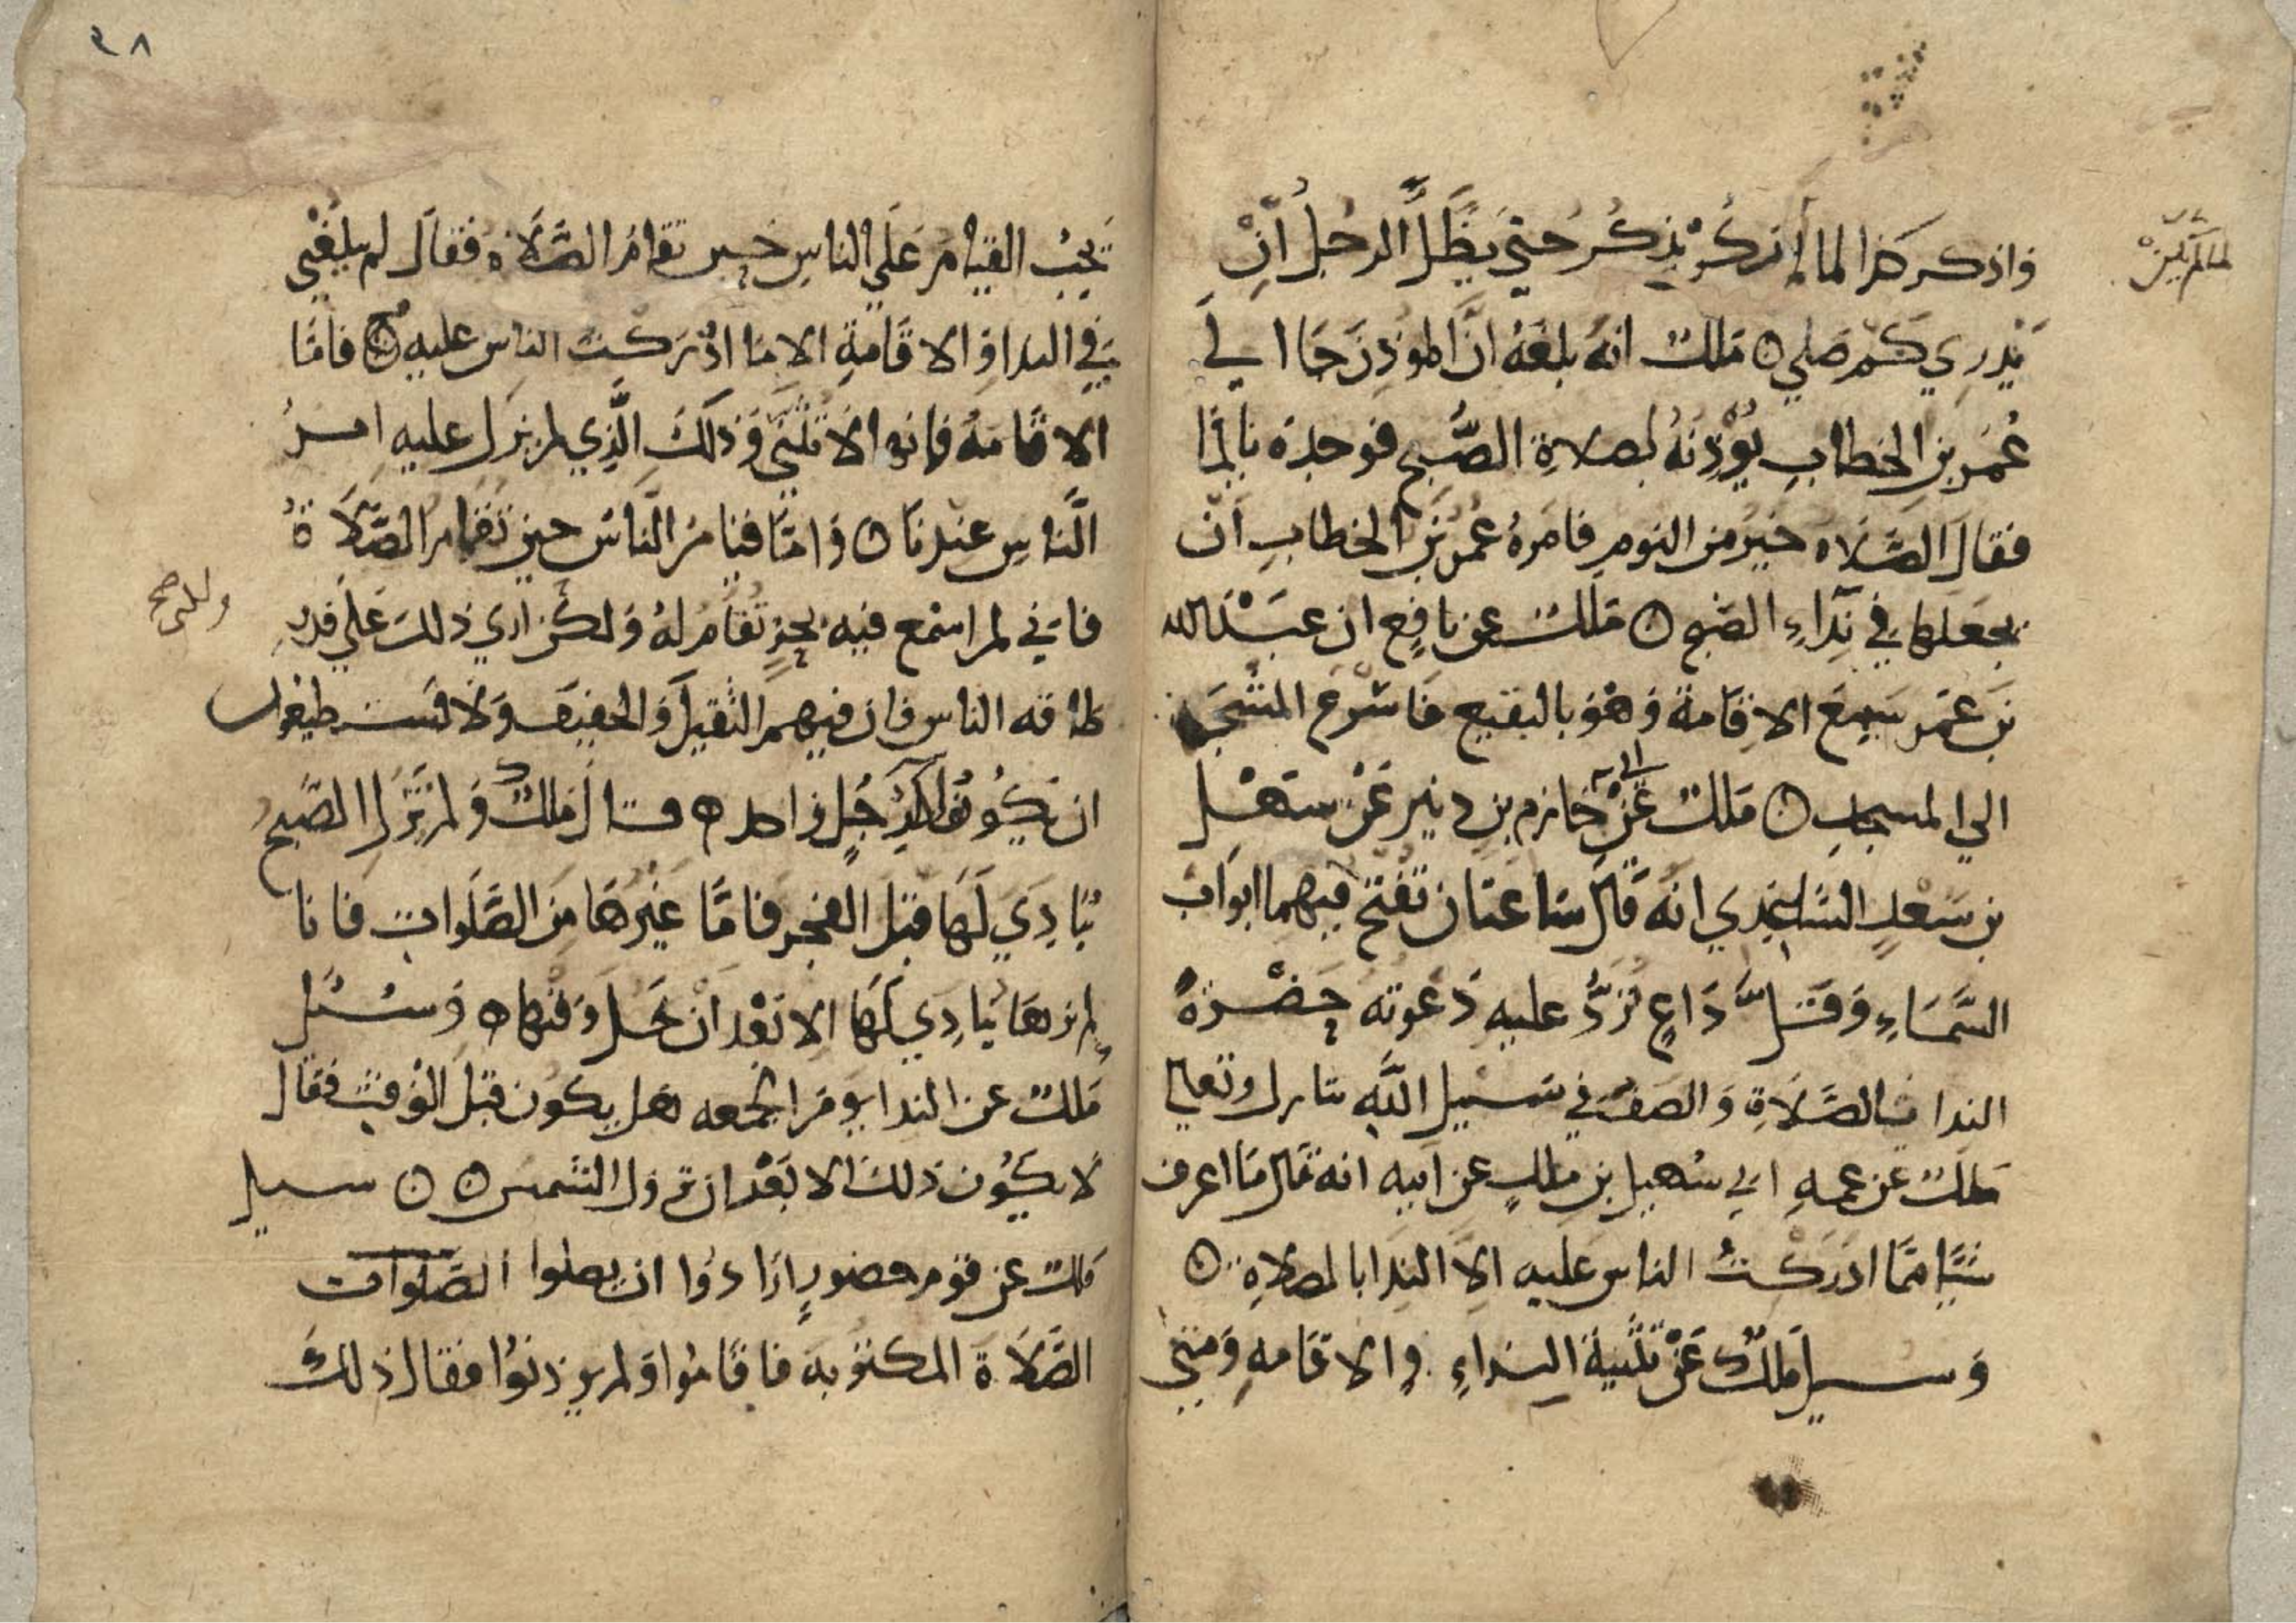 واذكر كذا لما لم تذكر يذكر حتى يظل الرجل ان
لما لم يكن
يدري كم صلى ه ملك انه بلغه ان الموذن جا الي
عمر بن الخطاب يوذنه لصلاة الصبح فوجده نائما
فقال الصلاة خير من النوم فامره عمر بن الخطاب ان
يجعلها في نداء الصبح ه ملك عن نافع ان عبد الله
بن عمر سمع الاقامة وهو بالبقيع فاسرع المشي
الي المسجد ه ملك عن ابي حازم بن دينر عن سهل
بن سعد الساعدي انه قال ساعتان تفتح فيهما ابواب
السماء وقل داع ترد عليه دعوته حضرة
الندا بالصلاة والصف في سبيل الله تبارك وتعالى
ملك عن عمه ابي سهيل بن ملك عن ابيه انه قال ما اعرف
شيا مما ادركت الناس عليه الا الندا بالصلاة ه
وسيل ملك عن تثنية النداء والاقامه ومتى
٣٨
يجب القيام على الناس حين تقام الصلاة فقال لم يبلغني
في الندا والاقامة الا ما ادركت الناس عليه ه فاما
الاقامة فانها لا تثنى وذلك الذي لم يزل عليه امر
الناس عندنا ه واما قيام الناس حين تقام الصلاة
فاني لم اسمع فيه بحد تقام له ولكن ارى ذلك على قدر
طاقه الناس فان فيهم الثقيل والخفيف ولا يستطيعون
ان يكونوا كرجل واحد ه قال ملك ولم تزل الصبح
ينادي لها قبل الفجر فاما غيرها من الصلوات فانا
لم نرها ينادي لها الا بعد ان يحل وقتها ه وسئل
ملك عن الندا يوم الجمعه هل يكون قبل الوقت فقال
لا يكون ذلك الا بعد ان تزول الشمس ه ه سيل
ملك عن قوم حضور ارادوا ان يصلوا الصلوات
الصلاة المكتوبة فاقاموا ولم يوذنوا فقال ذلك